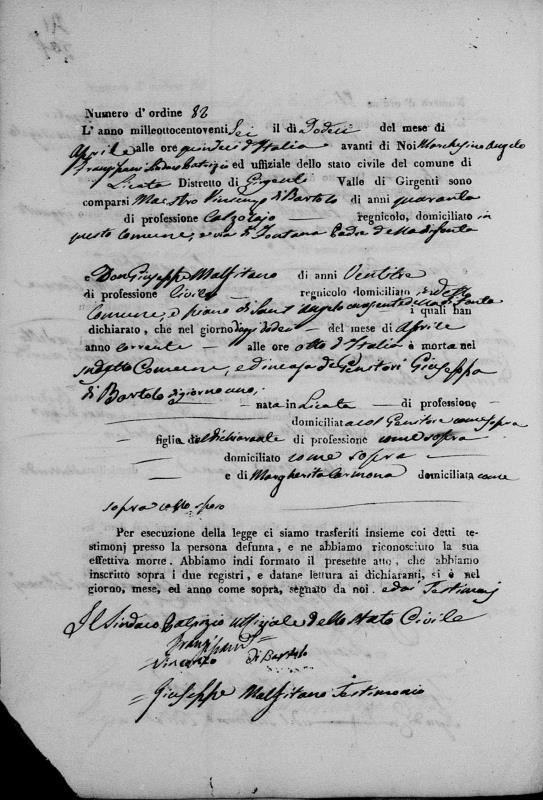 Numero d' ordine 82
L' anno milleottocentoventi Sei il dì Dodeci del mese di
Aprile alle ore quindeci d'Italia avanti di Noi Marchesino Angelo
Frangipani Sindaco Patrizio ed uffiziale dello stato civile del comune di
Licata Distretto di Girgenti Valle di Girgenti sono
comparsi Maestro Vincenzo di Bartolo di anni quaranta
di professione Calzolajo — regnicolo, domiciliato in
questo Comune, e via di Fontana Padre della defonta
e Don Giuseppe Malfitano di anni Ventitre
di professione Civile regnicolo domiciliato in detto
Comune, e piano di Sant Angelo della defonta i quali han
dichiarato, che nel giorno oggi dodeci — del mese di Aprile
anno corrente — alle ore otto d'Italia è morta nel
sudetto Comune, ed in casa de Genitori Giuseppa
di Bartolo di giorno uno;
— nata in Licata — di professione —
domiciliata col Genitore come sopra
— figlia del dichiarante di professione come sopra
domiciliato come sopra —
— e di Margherita Carmona domiciliata come
sopra collo sposo
Per esecuzione della legge ci siamo trasferiti insieme coi detti te-
stimonj presso la persona defunta, e ne abbiamo riconosciuto la sua
effettiva morte. Abbiamo indi formato il presente atto, che abbiamo
inscritto sopra i due registri, e datane lettura ai dichiaranti, si è nel
giorno, mese, ed anno come sopra, segnato da noi. e dai Testimonj
Il Sindaco Patrizio Uffiziale dello Stato Civile
Frangipani =
Vincenzo di Bartolo
= Giuseppe Malfitano Testimonio